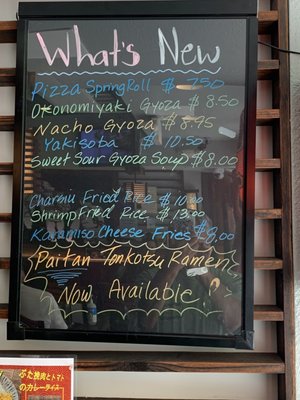 What's New
Pizza Spring Roll $ 7.50
Okonomiyaki Gyoza $ 8.50
Nacho Gyoza $ 8.95
Yakisoba $ 10.50
Sweet Sour Gyoza Soup $ 8.00
Charsiu Fried Rice $ 10.00
Shrimp Fried Rice $ 13.00
Karamiso Cheese Fries $ 8.00
Paitan Tonkotsu Ramen
Now Available!
ぶた挽肉とトマト
のカレーライス